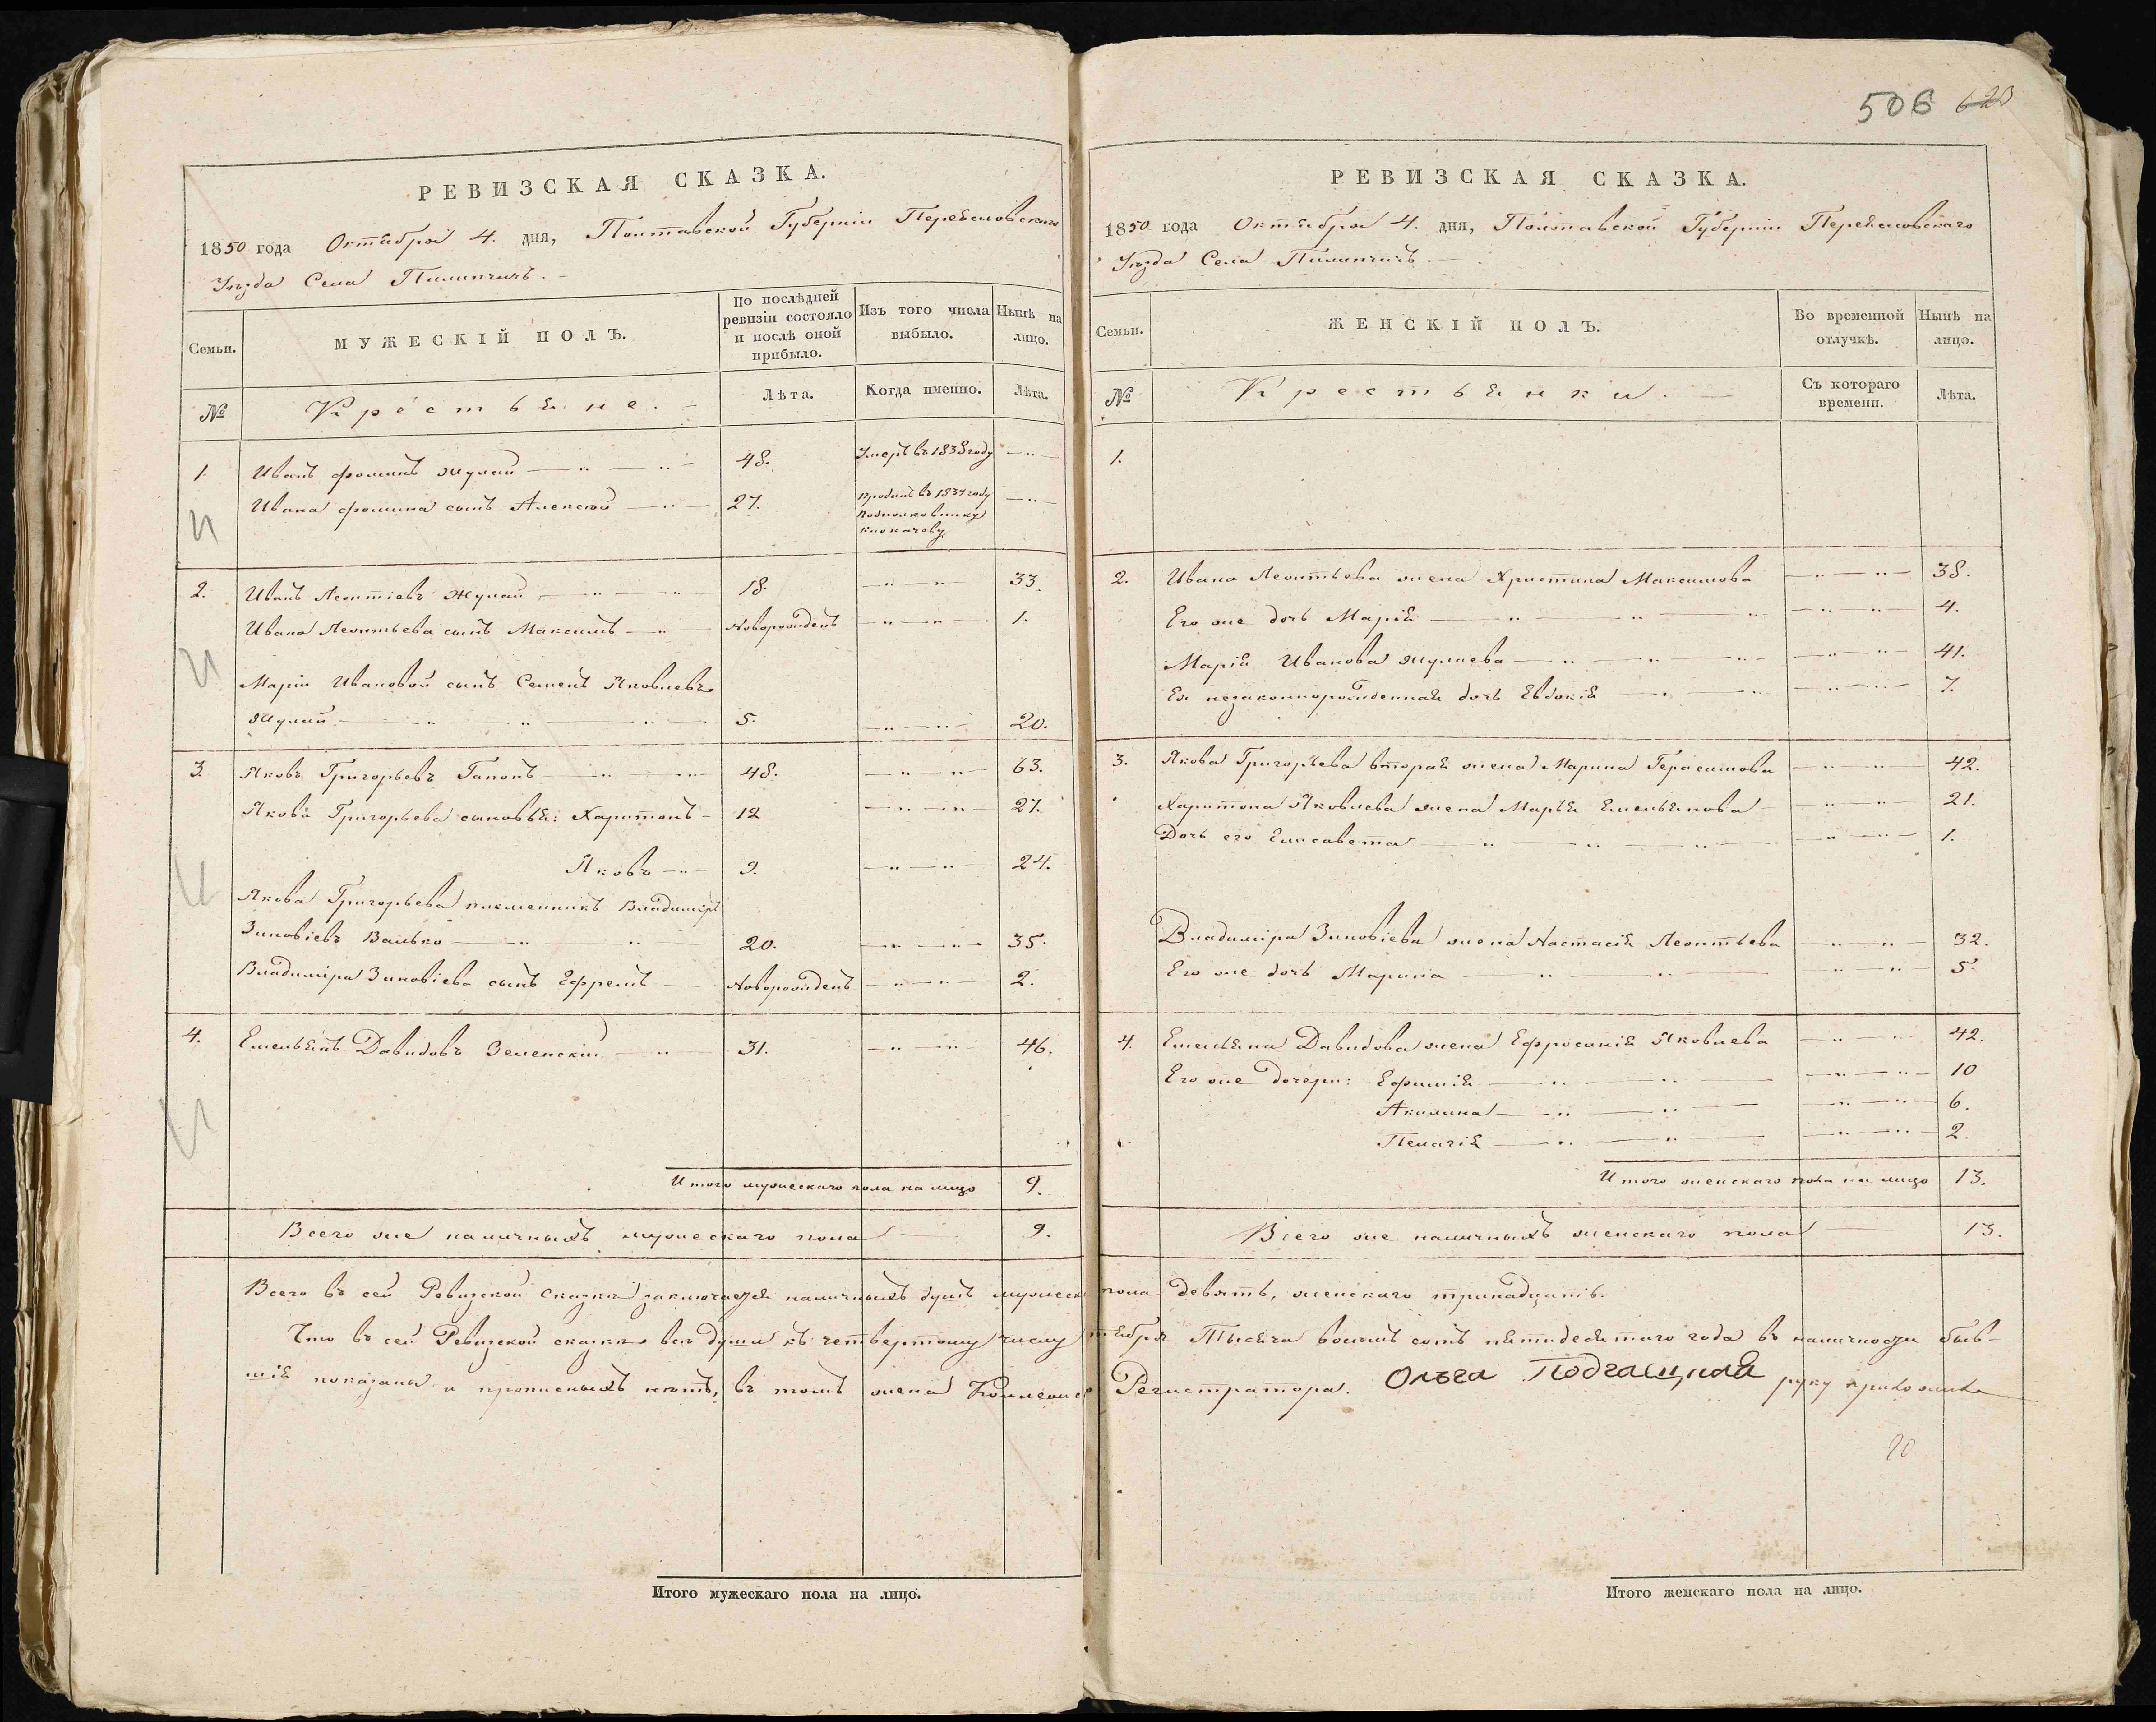 506 623
РЕВИЗСКАЯ СКАЗКА.
1850 года Октября 4. дня, Полтавской Губерніи Переяславскаго
Уѣзда Села Пилипчичъ.
Семьи.
МУЖЕСКІЙ ПОЛЪ.
По послѣдней
ревизіи состояло
и послѣ оной
прибыло.
Изъ того числа
выбыло.
Нынѣ на
лицо.
№
Крестьяне.
Лѣта.
Когда именно.
Лѣта.
1. Иванъ Фоминъ Жулай 48. Умеръ въ 1838 году
Ивана Фомина сынъ Алексѣй 27. Проданъ въ 1837 году
Подполковнику
Клокачеву
2. Иванъ Леонтіевъ Жулай 18. 33.
Ивана Леонтьева сынъ Максимъ Новорожденъ 1.
Маріи Ивановой сынъ Семенъ Яковлевъ
Жулай 5. 20.
3. Яковъ Григорьевъ Гапонъ 48. 63.
Якова Григорьева сыновья: Харитонъ 12 27.
Яковъ 9. 24.
Якова Григорьева племенникъ Владиміръ
Зиновіевъ Валько 20. 35.
Владиміра Зиновіева сынъ Ефремъ Новорожденъ 2.
4. Емельянъ Давидовъ Зеленскій 31. 46.
Итого мужескаго пола на лицо 9.
Всего же наличныхъ мужескаго пола 9.
РЕВИЗСКАЯ СКАЗКА.
1850 года Октября 4. дня, Полтавской Губерніи Переяславскаго
Уѣзда Села Пилипчичъ.
Семьи.
ЖЕНСКІЙ ПОЛЪ.
Во временной
отлучкѣ.
Нынѣ на
лицо.
№
Крестьянки.
Съ котораго
времени.
Лѣта.
1.
2. Ивана Леонтьева жена Христина Максимова 38.
Его же дочь Марія 4.
Марія Иванова Жулаева 41.
Ея незаконнорожденная дочь Евдокія 7.
3. Якова Григорьева вторая жена Марина Герасимова 42.
Харитона Яковлева жена Марья Емельянова 21.
Дочь его Елисавета 1.
Владиміра Зиновіева жена Настасія Леонтьева 32.
Его же дочь Марина 5.
4. Емельяна Давидова жена Ефросинія Яковлева 42.
Его же дочери: Ефимія 10
Акилина 6.
Пелагія 2.
Итого женскаго пола на лицо 13.
Всего же наличныхъ женскаго пола 13.
Всего въ сей Ревизской Сказкѣ заключается наличныхъ душъ мужеск пола девять, женскаго тринадцать.
Что въ сей Ревизской сказкѣ всѣ души къ четвертому числу тября Тысяча восемь сотъ пятидесятаго года въ наличности быв-
шія показаны и прописныхъ нѣтъ, въ томъ жена Коллежск Регистратора. Ольга Подгаецкая руку приложила
Итого мужескаго пола на лицо.
Итого женскаго пола на лицо.